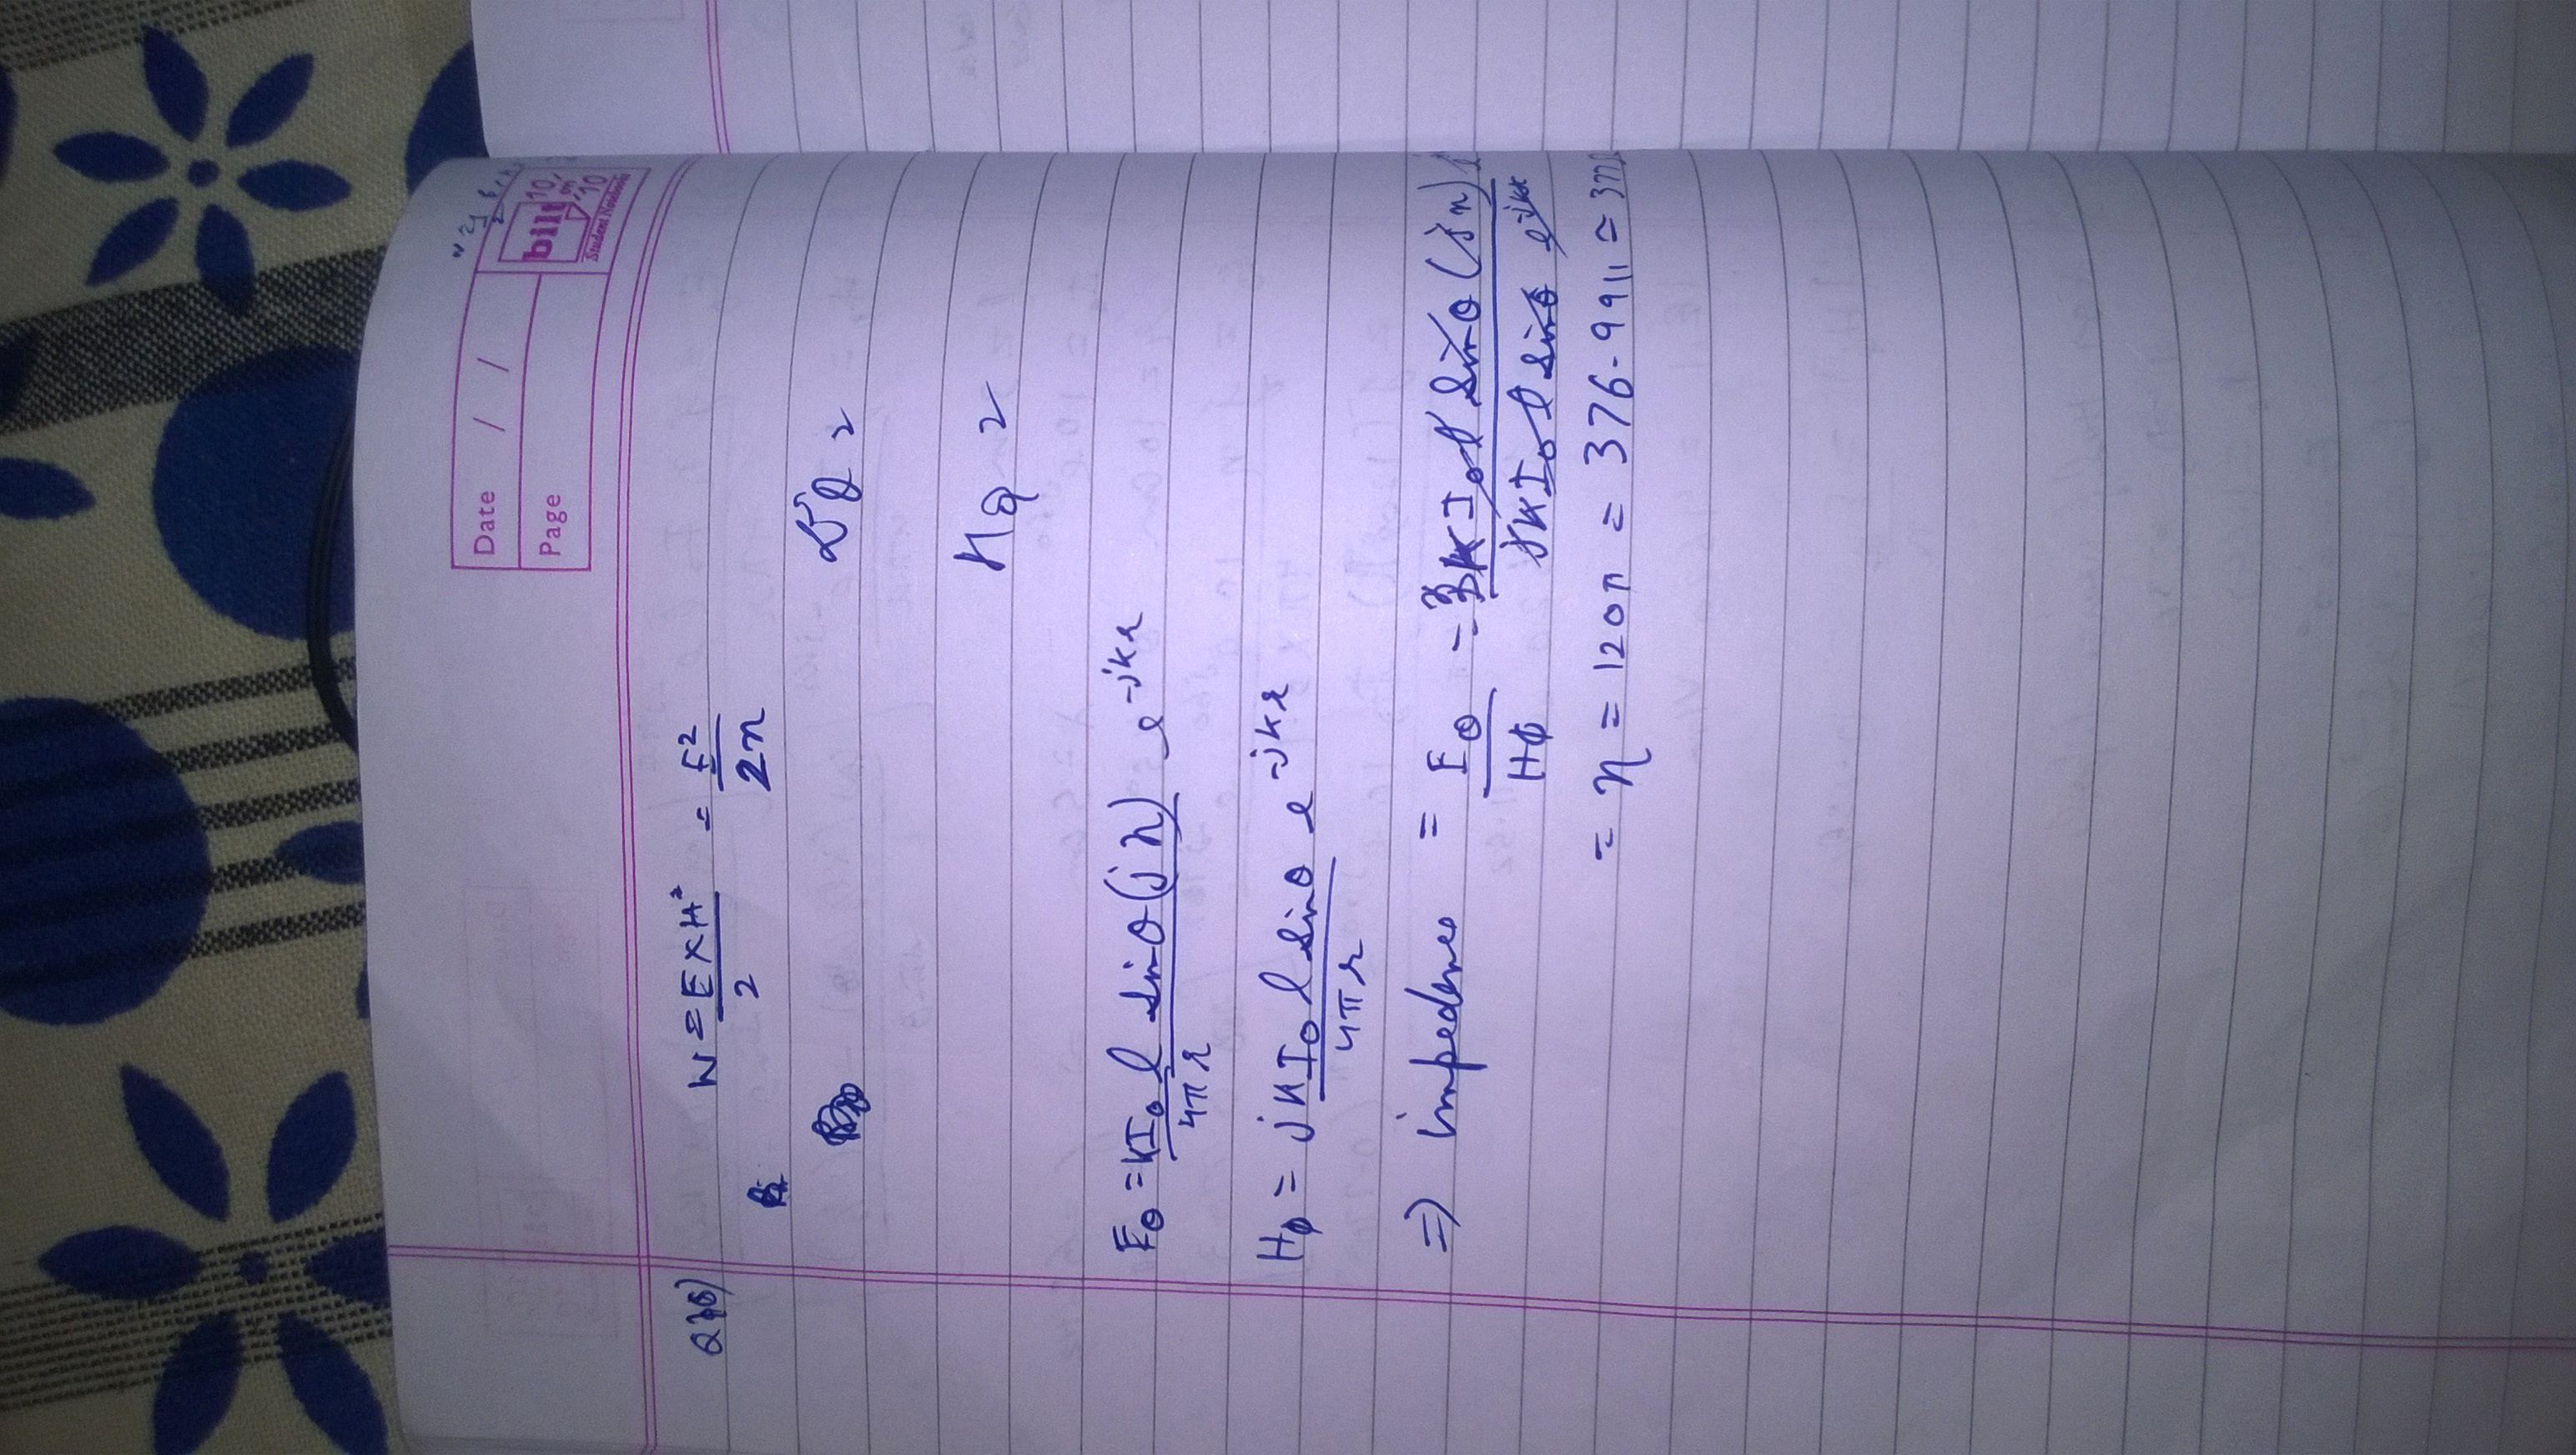 Date / /
Page
bilt 10 on 10
Student Notebook
W = E×H* / 2 = E² / 2η
Hθ =
Eθ = kI₀ l sinθ (jη) / 4πr e^-jkr
Hφ = jkI₀ l sinθ / 4πr e^-jkr
⇒ impedance = Eθ / Hφ = kI₀ l sinθ (jη) / jkI₀ l sinθ e^-jkr
= η = 120π = 376.9911 =